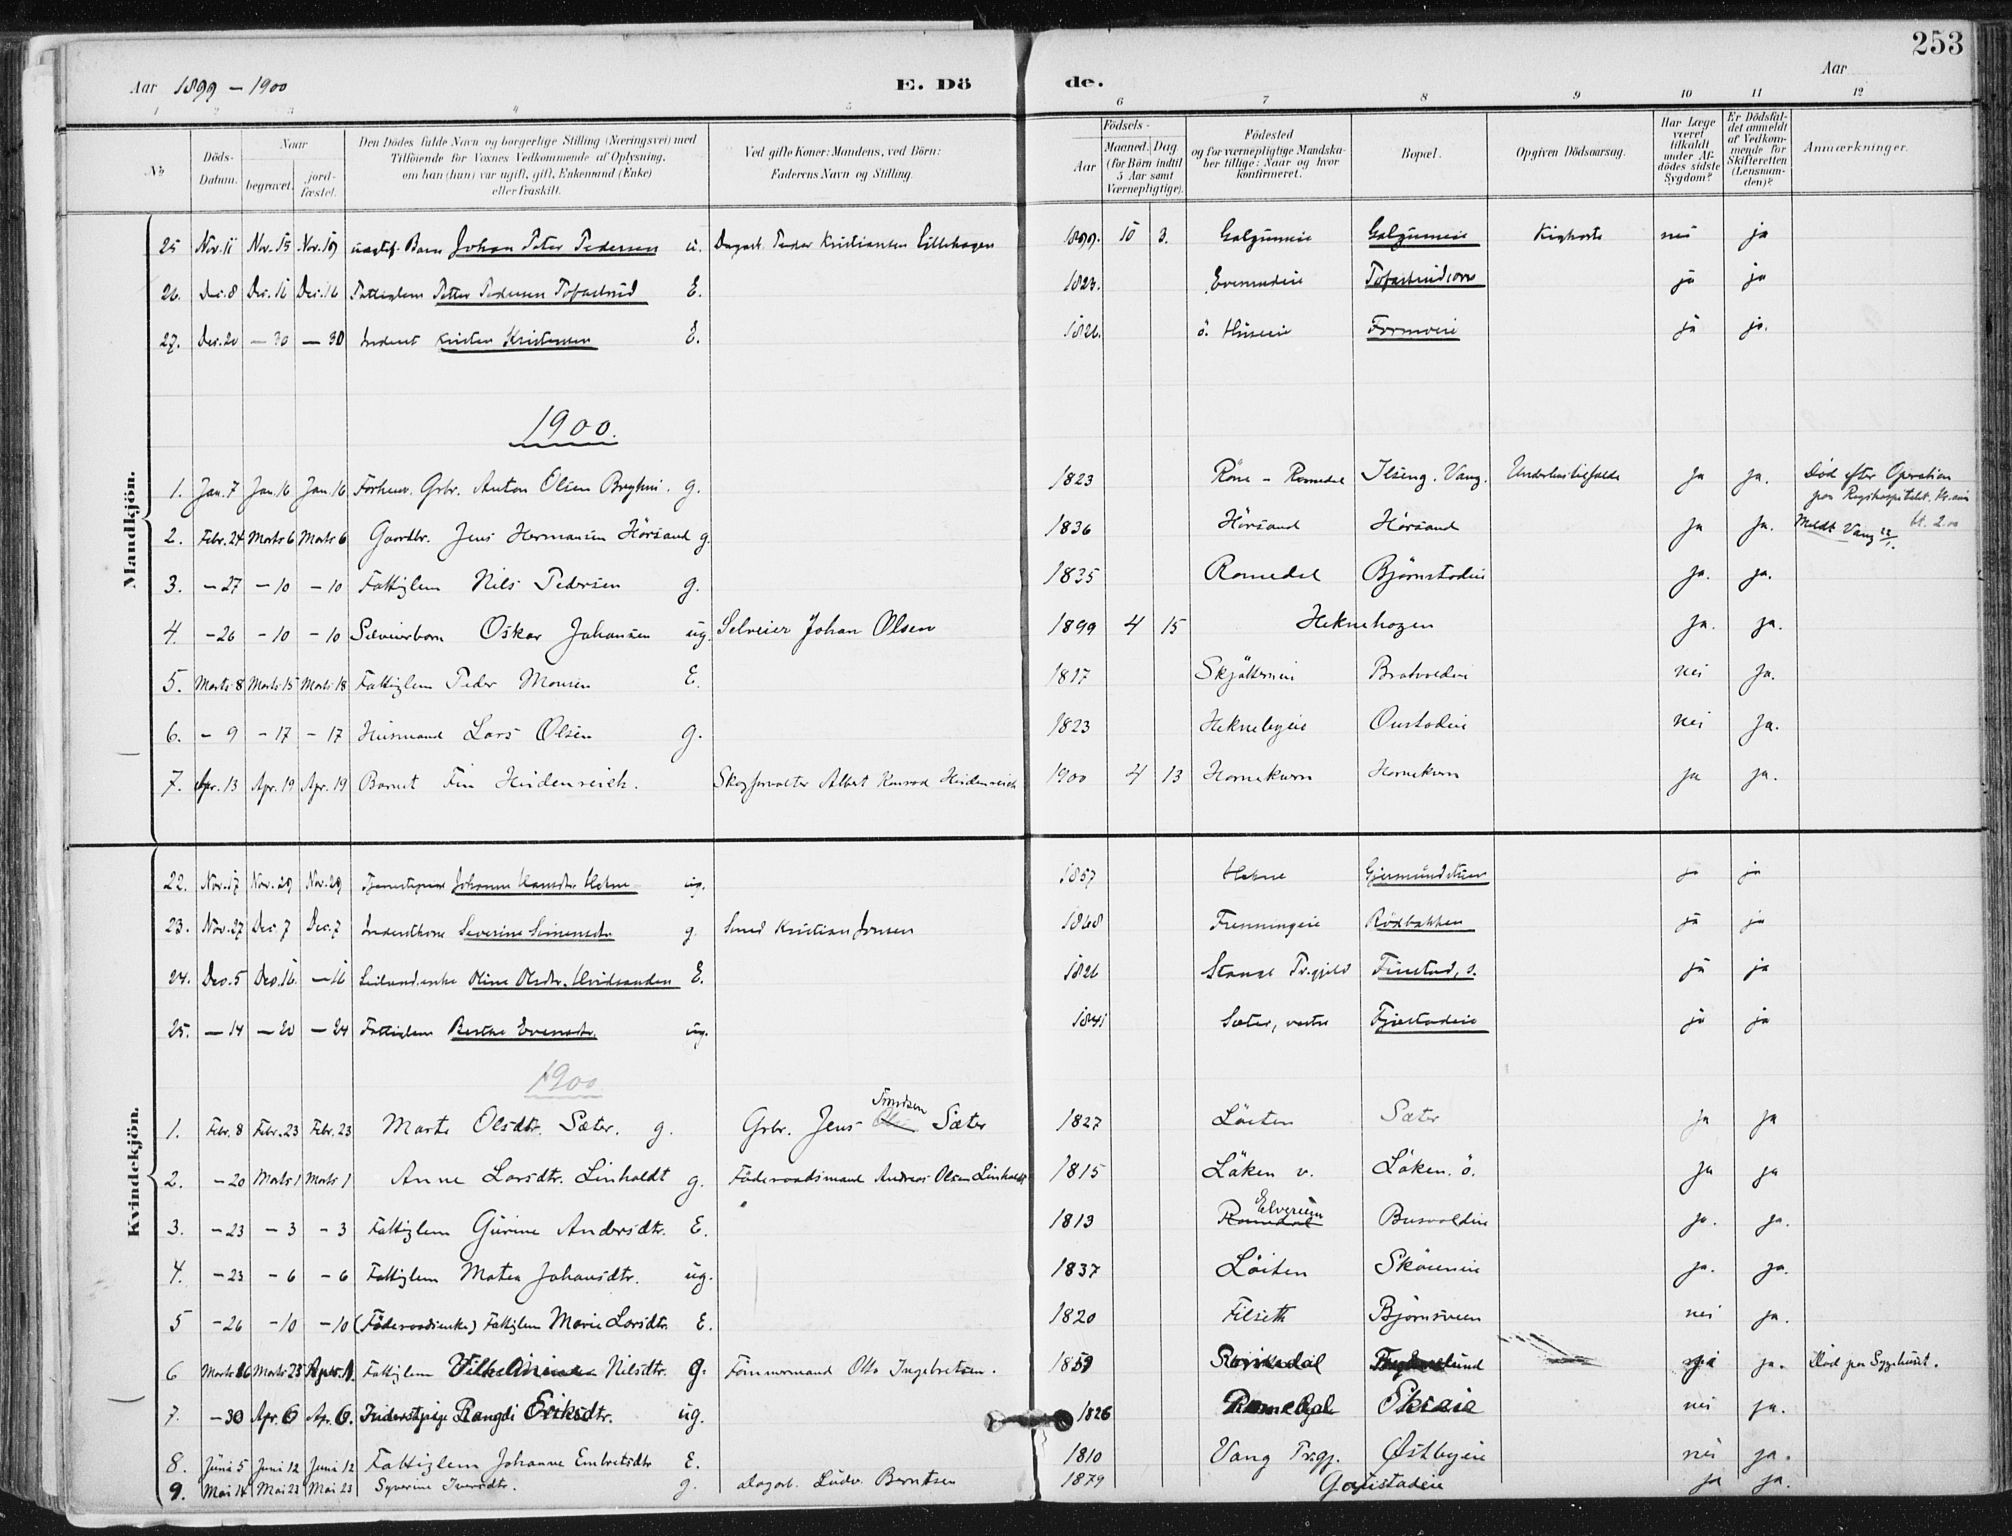 253
Aar 1899 – 1900
E. Dö de.
Aar
1 2 3 4 5 6 7 8 9 10 11 12
№
Döds-Datum.
Naar
begravet.
jord-fæstet.
Den Dödes fulde Navn og borgerlige Stilling (Næringsvei) med Tilföiende for Voxnes Vedkommende af Oplysning, om han (hun) var ugift, gift, Enkemand (Enke) eller fraskilt.
Ved gifte Koner: Mandens, ved Börn: Faderens Navn og Stilling.
Födsels-
Aar
Maaned. Dag
(for Börn indtil 5 Aar samt Værnepligtige).
Födested og for værnepligtige Mandskaber tillige: Naar og hvor konfirmeret.
Bopæl.
Opgiven Dödsaarsag.
Har Læge været tilkaldt under Afdödes sidste Sygdom?
Er Dödsfaldet anmeldt af Vedkommende for Skifteretten (Lensmanden)?
Anmærkninger.
Mandkjön.
25 Nov. 11 Nov. 15 Nov. 19 uægtef. Barn Johan Peter Pedersen u. Dagarb. Peder Kristiansen Lillehagen 1899. 10 3. Galgumeie Galgumeie Kighoste nei ja
26. Dec. 8 Dec. 16 Dec. 16 Fattiglem Petter Pedersen Tofastrud E. 1823. Evensudeie ja ja
27. Dec. 20 – 30 – 30 Inderst Kristen Kristensen E. 1826. ö. Huseeie ja ja.
1900.
1. Jan. 7 Jan. 16 Jan. 16 Forhenv. Grbr. Anton Olsen g. 1823 – Romedal Ilseng. Vang. Ja ja. Död efter Operation paa Rigshospitalet. Meldt Vang
2. Febr. 24 Marts 6 Marts 6 Gaardbr. Jens Hermansen Hörsand g 1836 Hörsand Hörsand Ja Ja.
3. – 27 – 10 – 10 Fattiglem Nils Pedersen g. 1835 Romedal Björnstadeie Ja. ja.
4. – 26 – 10 – 10 Selveierbarn Oskar Johansen ug. Selveier Johan Olsen 1899 4 15 Heknehagen Ja. ja.
5. Marts 8 Marts 15 Marts 18 Fattiglem Peder Monsen E. 1817 Bratvoldeie nei Ja.
6. – 9 – 17 – 17 Husmand Lars Olsen g. 1823 Heknebyeie Oustadeie nei Ja.
7. Apr. 13 Apr. 19 Apr. 19 Barnet Fin Heidenreich. Skogforvalter Albert Konrad Heidenreich 1900 4 13 Hornekvern Hornekvern ja ja.
Kvindekjön.
22. Nov. 17 Nov. 29 Nov. 29 Tjenestepige Johanne Hansdtr. Hekne ug. 1857 Hekne ja ja
23. Nov. 27 Dec. 7 Dec. 7 Inderstkone Severine Simensdtr. g. Smed Kristian Jensen 1868 Frenningeie Röxbakken ja ja
24. Dec. 5 Dec. 16 – 16 Oline Olsdtr. Hvidsanden E. 1826 Stange Pr.gjeld Finstad, s. ja ja
25. – 14 – 20 – 24 Fattiglem Berthe Evensdtr. ug. 1841 Sæter, vestre Fjæstadeie ja ja
1900
1. Febr. 8 Febr. 23 Febr. 23 Marte Olsdtr. Sæter. g. Grbr. Jens Trondsen Sæter 1827 Löiten Sæter Ja Ja
2. – 20 Marts 1 Marts 1 Anne Larsdtr. Linholdt g. Föderaadsmand Andreas Olsen Linholdt 1815 Löken v. Löken. ö. Ja ja
3. – 23 – 3 – 3 Fattiglem Gurine Andersdtr. E. 1813 Romedal Elverum Busvoldeie ja. ja.
4. – 23 – 6 – 6 Fattiglem Matea Johansdtr. ug. 1837 Löiten Sköieneie ja. ja.
5 – 26 – 10 – 10 (Föderaadsenke) Fattiglem Marie Larsdtr. E. 1820 Filseth Björnsveen nei ja.
6 Marts 16 Marts 25 April 1. Fattiglem Vilhelmine Nilsdtr. g. Tömmermand Otto Ingebretsen. 1859 Romedal ja. Död paa Sygehuset.
7. – 30 Apr. 6 Apr. 6. Inderstpige Rangdi Eriksdtr. ug. 1826 Romedal Ekraeie nei ja.
8. Juni 5 Juni 12 Juni 12 Fattiglem Johanne Embretsdtr E. 1810 Vang Prgj. Østbyeie nei ja.
9. Mai 14 Mai 23 Mai 23 Syverine Iversdtr. g. Dagarb. Ludv. Berntsen 1879 Gaustadeie ja ja.